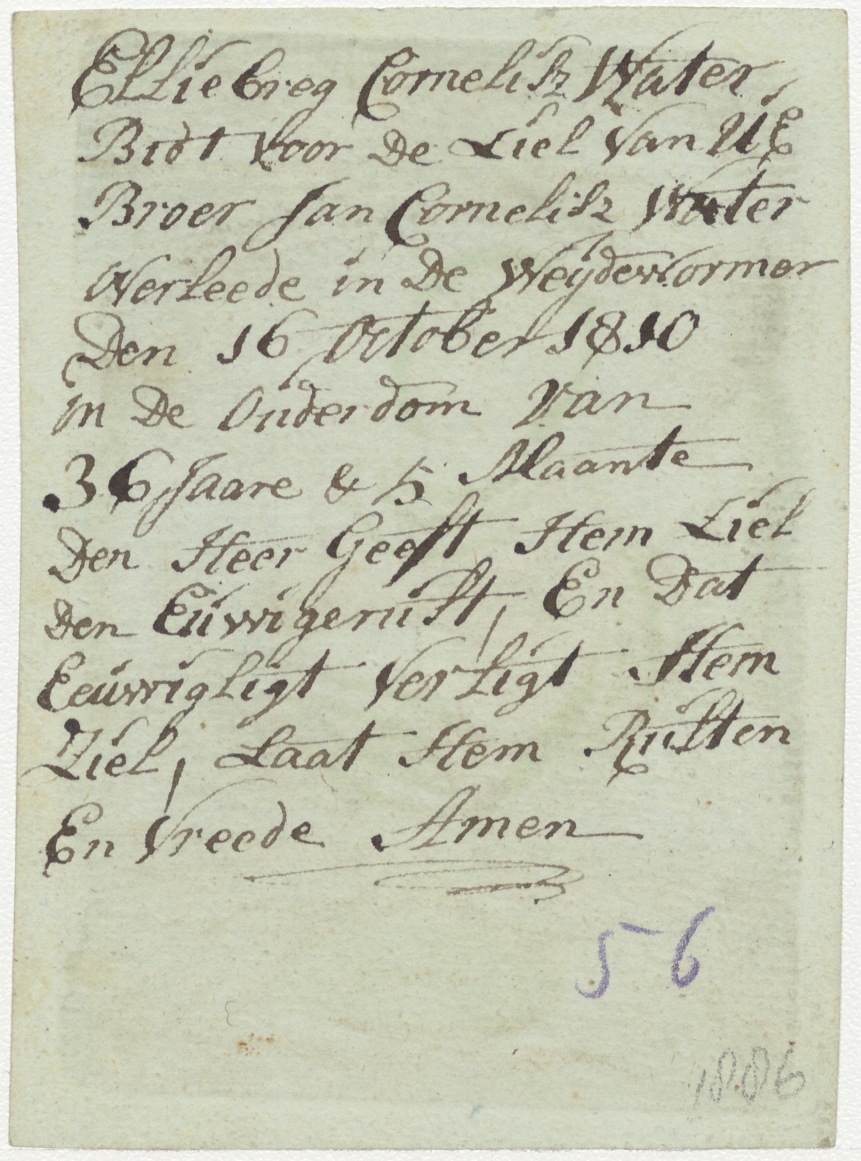 Elliebreg Cornelisz Water
Bidt voor De Ziel Van UE
Broer Jan Cornelisz Water
Overleede in De Weijdewormer
Den 16 October 1810
in De Ouderdom Van
36 Jaare & 5 Maante
Den Heer Geeft Hem Ziel
Den Eúwigerust, En Dat
Eeuwigligt Verligt Hem
Ziel, Laat Hem Rusten
En Vreede Amen
56
1886